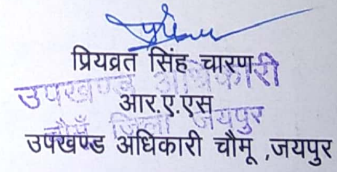 प्रियव्रत सिंह चारण
उपखण्ड अधिकारी
आर.ए.एस
चौमूँ जिला जयपुर
उपखण्ड अधिकारी चौमू ,जयपुर